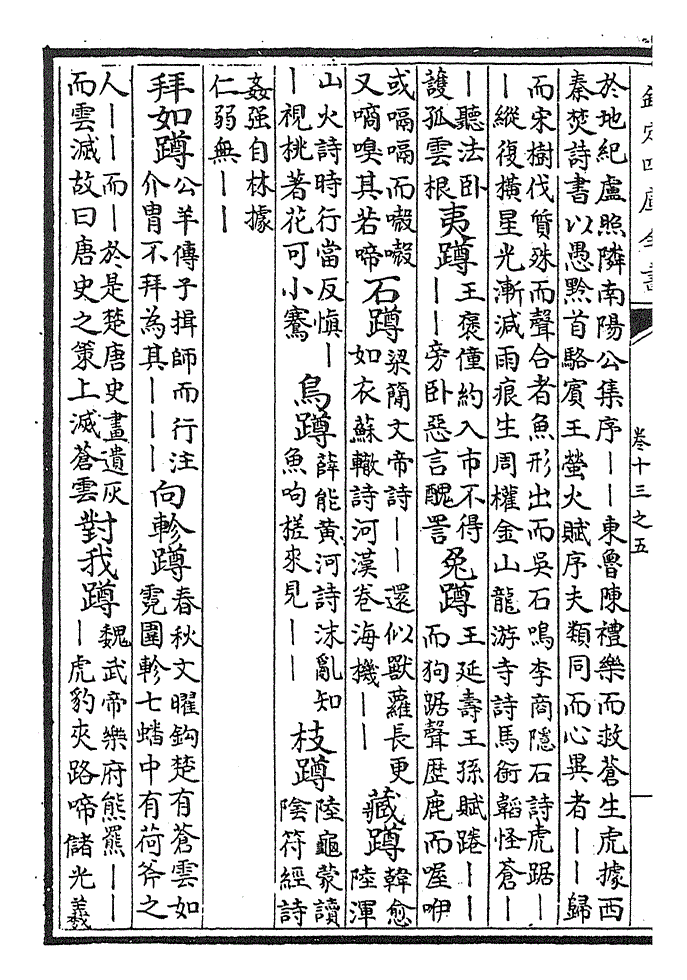 欽定四庫全書
卷十三之五
於地紀盧照隣南陽公集序丨丨東魯陳禮樂而救蒼生虎據西
秦焚詩書以愚黔首駱賓王螢火賦序夫類同而心異者丨丨歸
而宋樹伐質殊而聲合者魚形出而吳石鳴李商隱石詩虎踞丨
丨縱復橫星光漸減雨痕生周權金山龍游寺詩馬銜韜怪蒼丨
丨聽法卧
護孤雲根
夷蹲
王褒僮約入市不得
丨丨旁卧惡言醜詈
兔蹲
王延壽王孫賦踡丨丨
而狗踞聲歷鹿而喔咿
或嗝嗝而嗀嗀
又嘀嗅其若啼
石蹲
梁簡文帝詩丨丨還似獸蘿長更
如衣蘇轍詩河漢卷海機丨丨
藏蹲
韓愈
陸渾
山火詩時行當反慎丨
丨視桃著花可小騫
烏蹲
薛能黄河詩沫亂知
魚呴槎來見丨丨
枝蹲
陸龜蒙讀
陰符經詩
姦强自林據
仁弱無丨丨
拜如蹲
公羊傳子揖師而行注
介胄不拜為其丨丨丨
向軫蹲
春秋文曜鈎楚有蒼雲如
霓圍軫七蟠中有荷斧之
人丨丨而丨於是楚唐史畫遺灰
而雲滅故曰唐史之策上滅蒼雲
對我蹲
魏武帝樂府熊羆丨丨
丨虎豹夾路啼儲光羲